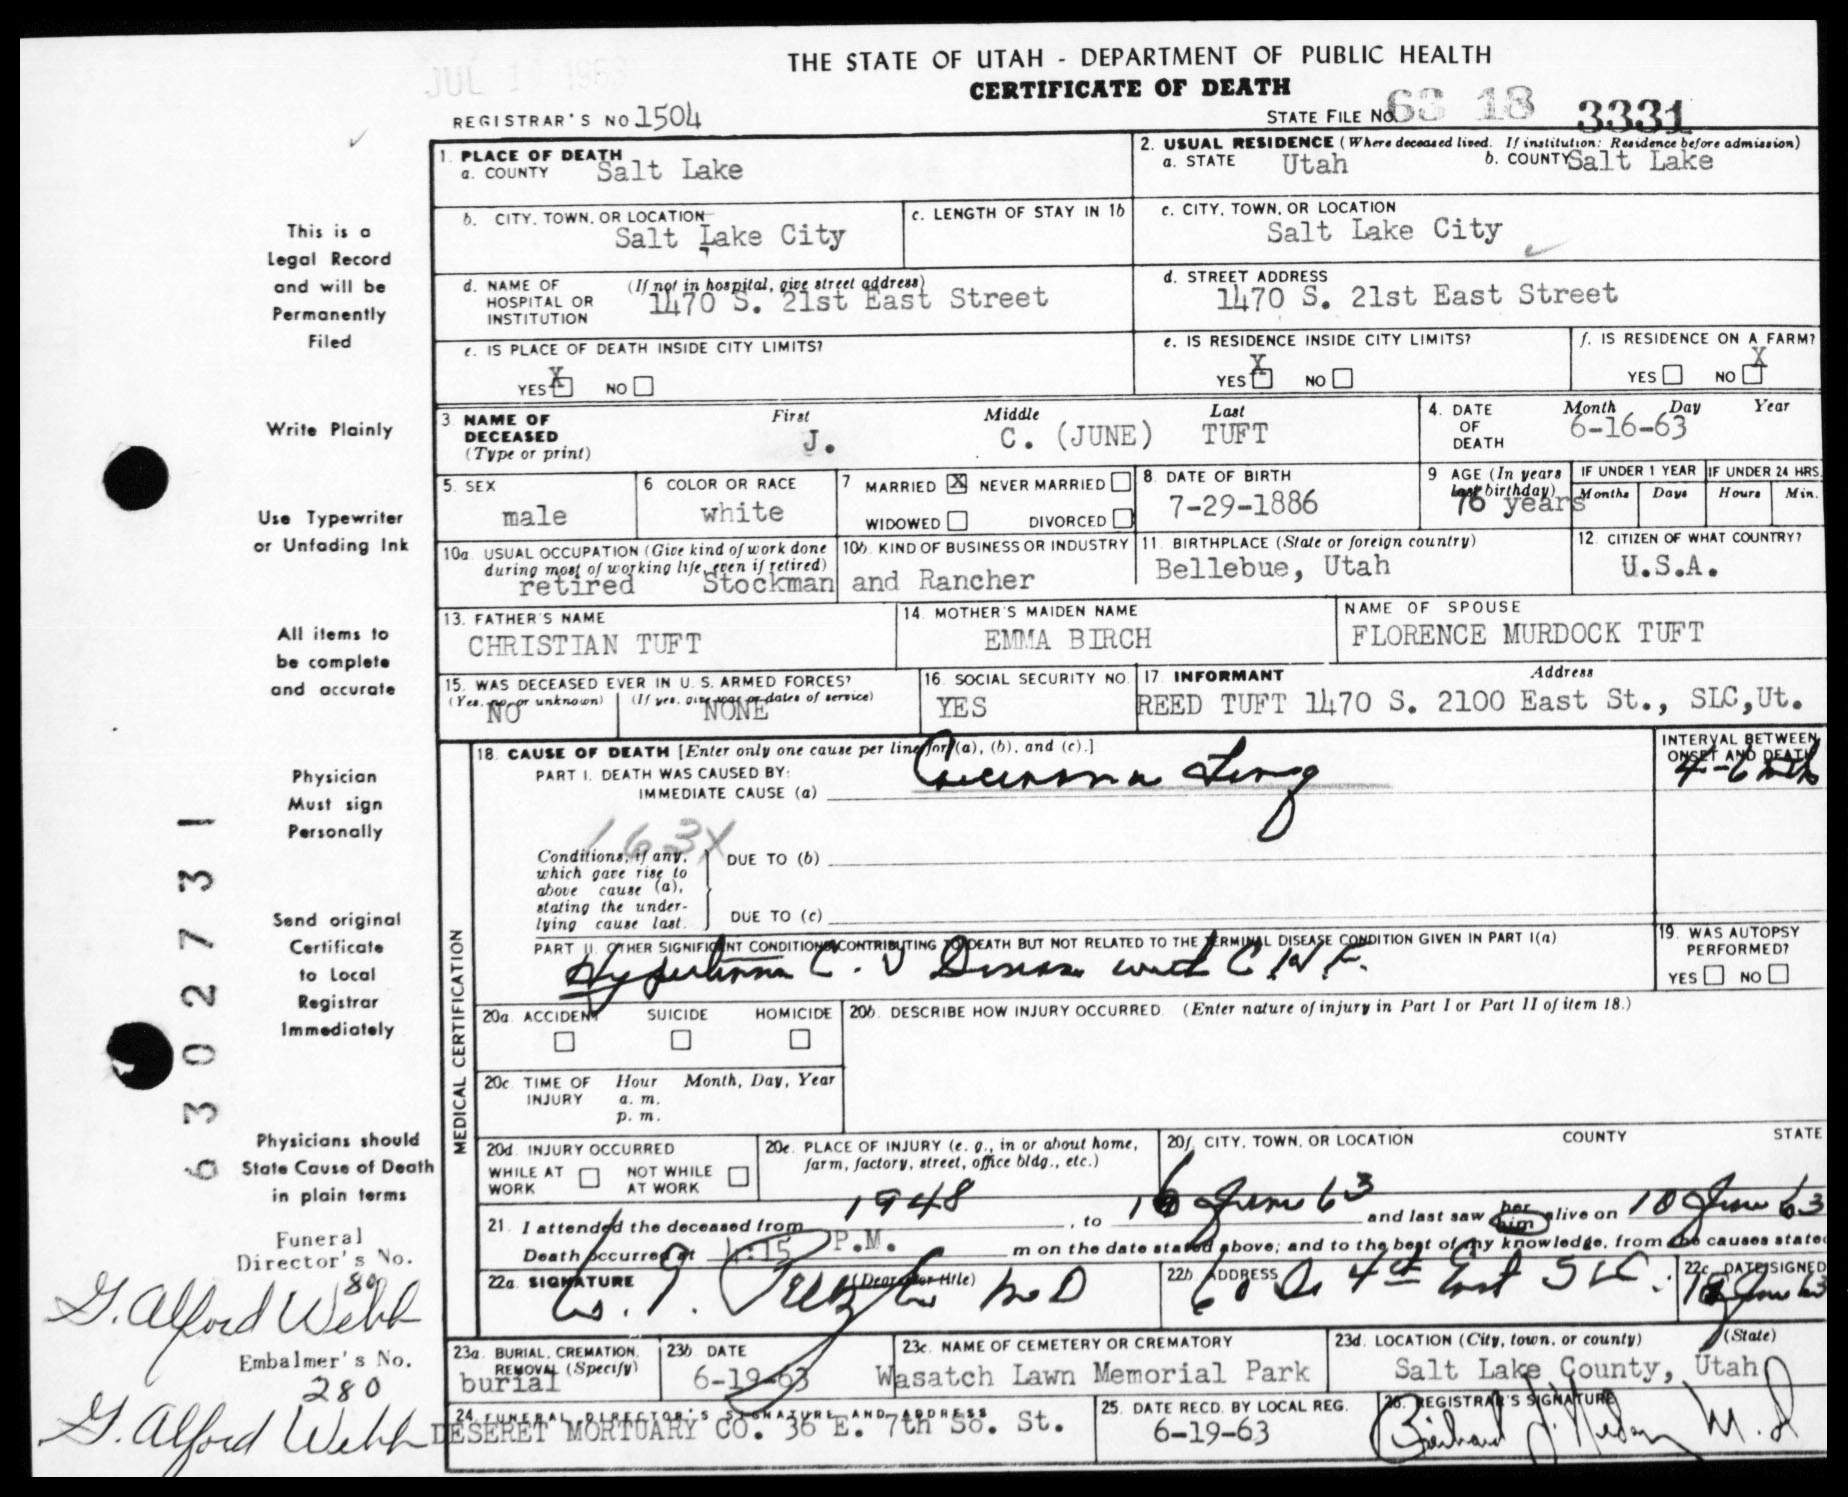 THE STATE OF UTAH - DEPARTMENT OF PUBLIC HEALTH
CERTIFICATE OF DEATH
REGISTRAR'S NO 1504
STATE FILE No. 63 18 3331
1. PLACE OF DEATH
a. COUNTY Salt Lake
2. USUAL RESIDENCE (Where deceased lived. If institution: Residence before admission)
a. STATE Utah b. COUNTY Salt Lake
b. CITY, TOWN, OR LOCATION Salt Lake City
c. LENGTH OF STAY IN 1b
c. CITY, TOWN, OR LOCATION Salt Lake City
d. NAME OF HOSPITAL OR INSTITUTION (If not in hospital, give street address) 1470 S. 21st East Street
d. STREET ADDRESS 1470 S. 21st East Street
e. IS PLACE OF DEATH INSIDE CITY LIMITS?
YES X NO
e. IS RESIDENCE INSIDE CITY LIMITS?
YES X NO
f. IS RESIDENCE ON A FARM?
YES NO X
3 NAME OF DECEASED (Type or print)
First Middle Last
J. C. (JUNE) TUFT
4. DATE OF DEATH Month Day Year
6-16-63
5. SEX male
6 COLOR OR RACE white
7 MARRIED X NEVER MARRIED
WIDOWED DIVORCED
8 DATE OF BIRTH 7-29-1886
9 AGE (In years last birthday) 76 years
IF UNDER 1 YEAR Months Days
IF UNDER 24 HRS. Hours Min.
10a. USUAL OCCUPATION (Give kind of work done during most of working life, even if retired)
10b. KIND OF BUSINESS OR INDUSTRY
retired Stockman and Rancher
11. BIRTHPLACE (State or foreign country)
Bellebue, Utah
12. CITIZEN OF WHAT COUNTRY?
U.S.A.
13. FATHER'S NAME
CHRISTIAN TUFT
14. MOTHER'S MAIDEN NAME
EMMA BIRCH
NAME OF SPOUSE
FLORENCE MURDOCK TUFT
15. WAS DECEASED EVER IN U. S. ARMED FORCES?
(Yes, no, or unknown) (If yes, give war or dates of service)
NO NONE
16. SOCIAL SECURITY NO.
YES
17. INFORMANT Address
REED TUFT 1470 S. 2100 East St., SLC,Ut.
MEDICAL CERTIFICATION
18. CAUSE OF DEATH [Enter only one cause per line for (a), (b), and (c).]
PART I. DEATH WAS CAUSED BY:
IMMEDIATE CAUSE (a) Carcinoma Lung
INTERVAL BETWEEN ONSET AND DEATH
4-6 mth
163X
Conditions, if any, which gave rise to above cause (a), stating the underlying cause last.
DUE TO (b)
DUE TO (c)
PART II. OTHER SIGNIFICANT CONDITIONS CONTRIBUTING TO DEATH BUT NOT RELATED TO THE TERMINAL DISEASE CONDITION GIVEN IN PART I(a)
Hypertension C. V Disease with C.H.F.
19. WAS AUTOPSY PERFORMED?
YES NO
20a. ACCIDENT SUICIDE HOMICIDE
20b. DESCRIBE HOW INJURY OCCURRED. (Enter nature of injury in Part I or Part II of item 18.)
20c. TIME OF INJURY Hour Month, Day, Year
a. m.
p. m.
20d. INJURY OCCURRED
WHILE AT WORK NOT WHILE AT WORK
20e. PLACE OF INJURY (e. g., in or about home, farm, factory, street, office bldg., etc.)
20f. CITY, TOWN, OR LOCATION COUNTY STATE
21. I attended the deceased from 1948, to 16 June 63 and last saw her him alive on 10 June 63
Death occurred at 1:15 P.M. m on the date stated above; and to the best of my knowledge, from the causes stated
22a. SIGNATURE (Degree or title)
M D
22b. ADDRESS
4th East SLC.
22c. DATE SIGNED
18 June 63
23a. BURIAL, CREMATION, REMOVAL (Specify)
burial
23b. DATE
6-19-63
23c. NAME OF CEMETERY OR CREMATORY
Wasatch Lawn Memorial Park
23d. LOCATION (City, town, or county) (State)
Salt Lake County, Utah
24. FUNERAL DIRECTOR'S SIGNATURE AND ADDRESS
DESERET MORTUARY CO. 36 E. 7th So. St.
25. DATE RECD. BY LOCAL REG.
6-19-63
26. REGISTRAR'S SIGNATURE
M.D
This is a
Legal Record
and will be
Permanently
Filed
Write Plainly
Use Typewriter
or Unfading Ink
All items to
be complete
and accurate
Physician
Must sign
Personally
Send original
Certificate
to Local
Registrar
Immediately
Physicians should
State Cause of Death
in plain terms
Funeral
Director's No.
80
G. Alford Webb
Embalmer's No.
280
G. Alford Webb
6302731